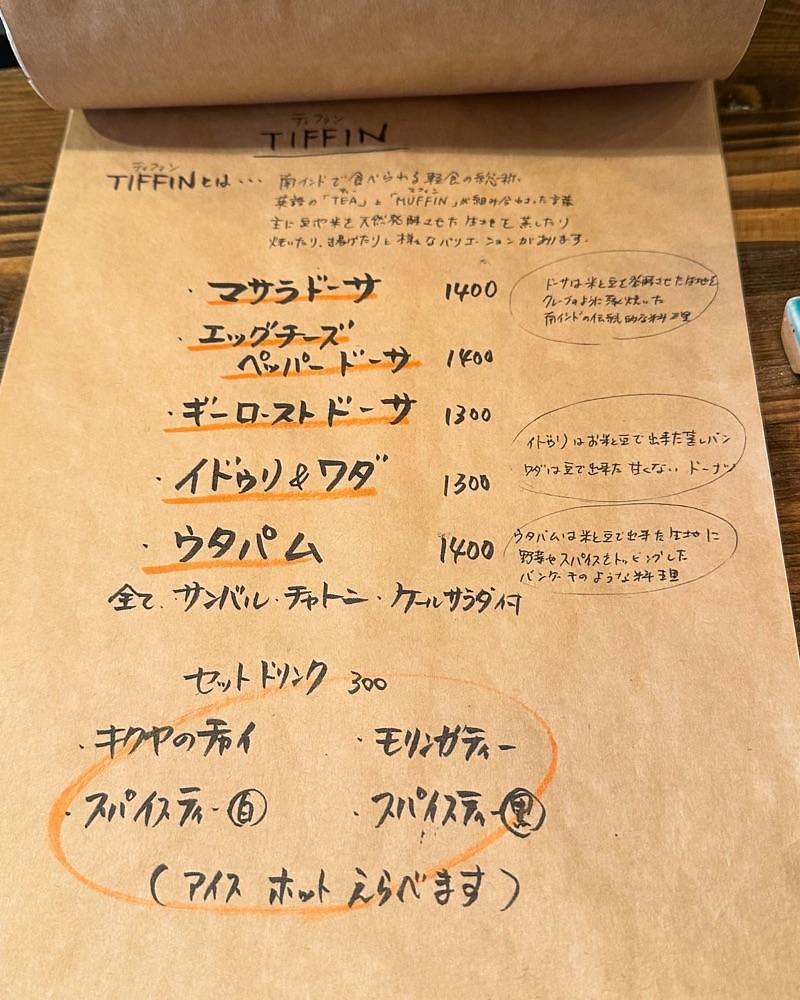 ティファン
TIFFIN
ティファン
TIFFINとは・・・ 南インドで食べられる軽食の総称。
英語の「TEA」と「MUFFIN」が組み合わさった言葉
ティー マフィン
主に豆や米を天然発酵させた生地を蒸したり
焼いたり、揚げたりと様々なバリエーションがあります。
・マサラドーサ 1400
ドーサは米と豆で発酵させた生地を
クレープのように薄く焼いた
南インドの伝統的な料理
・エッグチーズ
ペッパードーサ 1400
・ギーローストドーサ 1300
・イドゥリ&ワダ 1300
イドゥリはお米と豆で出来た蒸しパン
ワダは豆で出来た甘くないドーナツ
・ウタパム 1400
ウタパムは米と豆で出来た生地に
野菜やスパイスをトッピングした
パンケーキのような料理
全て、サンバル・チャトニ・ケールサラダ付
セットドリンク 300
・キクヤのチャイ ・モリンガティー
・スパイスティー白 ・スパイスティー黒
(アイス ホット えらべます)